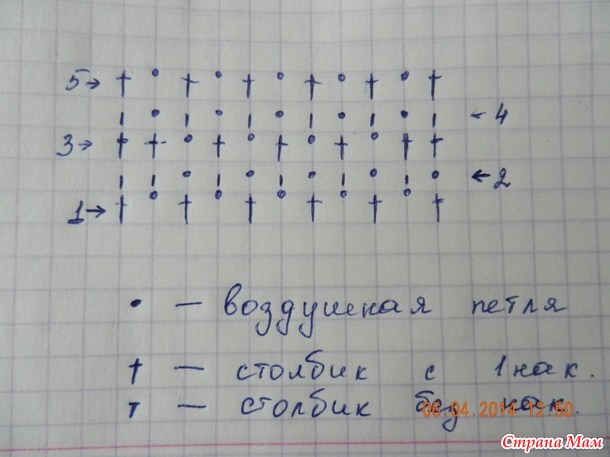 5→
←4
3→
←2
1→
• — воздушная петля
† — столбик с 1 нак.
т — столбик без нак.
06.04.2014 12:50
Страна Мам